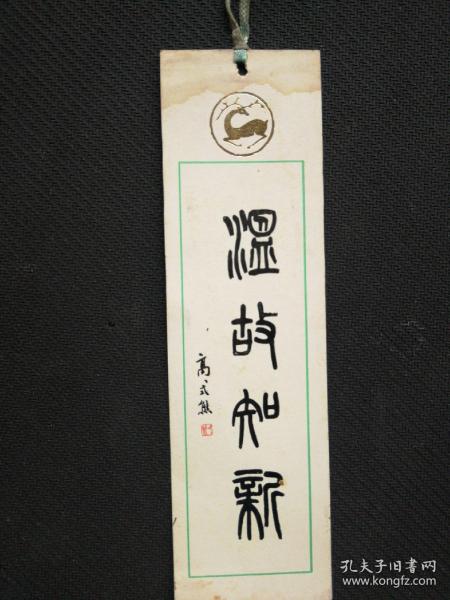 温故知新
高式熊
孔夫子旧书网
www.kongfz.com